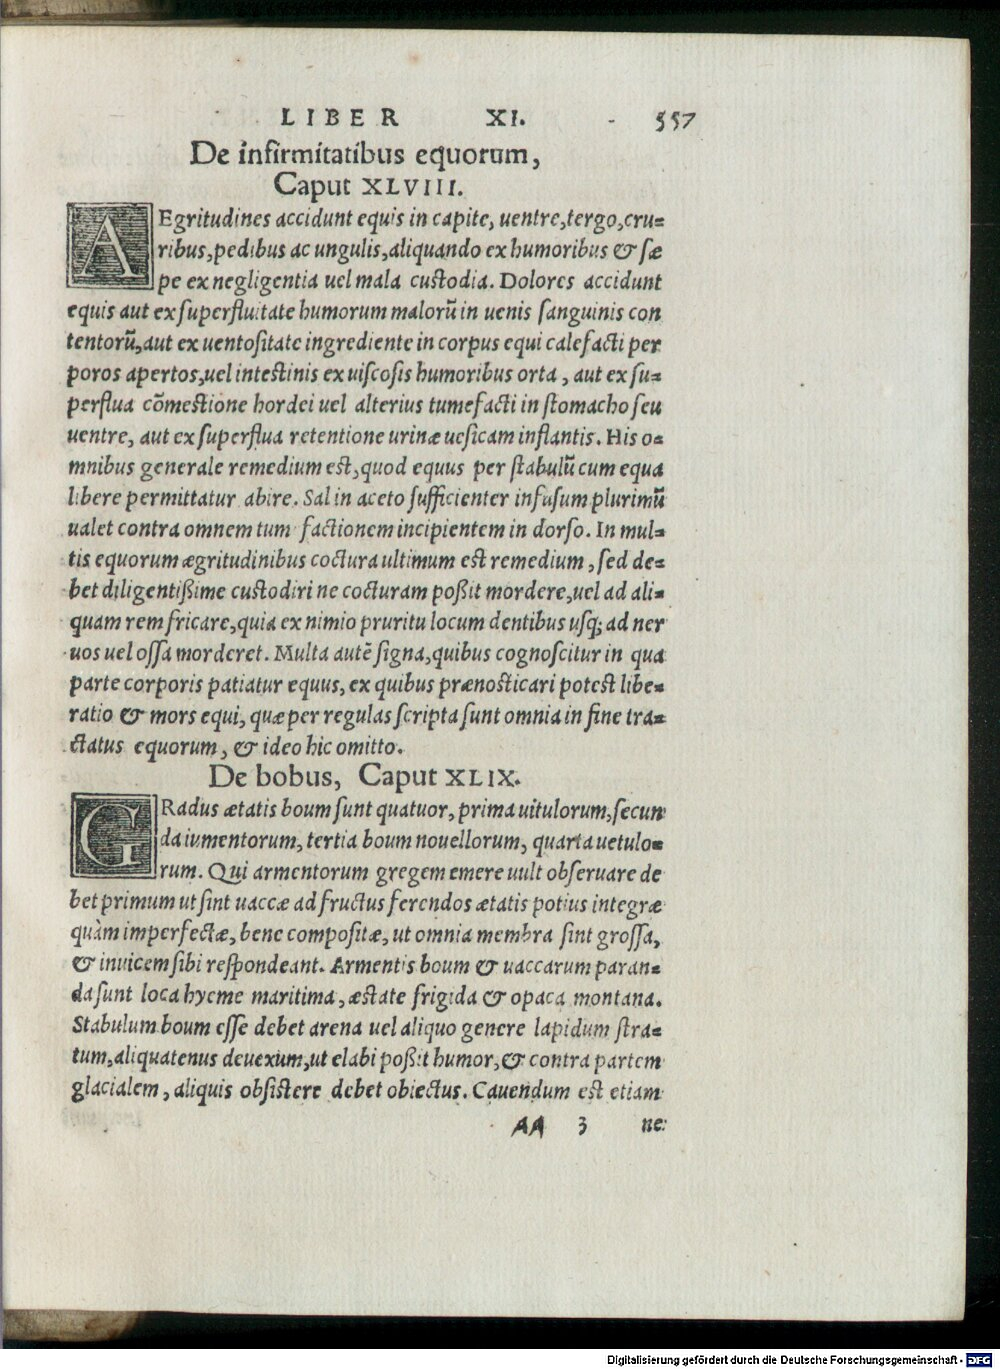 LIBER XI. 557
De infirmitatibus equorum,
Caput XLVIII.
AEgritudines accidunt equis in capite, uentre, tergo, cru=
ribus, pedibus ac ungulis, aliquando ex humoribus & sæ
pe ex negligentia uel mala custodia. Dolores accidunt
equis aut ex superfluitate humorum malorũ in uenis sanguinis con
tentorũ, aut ex uentositate ingrediente in corpus equi calefacti per
poros apertos, uel intestinis ex uiscosis humoribus orta, aut ex su=
perflua cõmestione hordei uel alterius tumefacti in stomacho seu
uentre, aut ex superflua retentione urinæ uesicam inflantis. His o=
mnibus generale remedium est, quod equus per stabulũ cum equa
libere permittatur abire. Sal in aceto sufficienter infusum plurimũ
ualet contra omnem tum factionem incipientem in dorso. In mul=
tis equorum ægritudinibus coctura ultimum est remedium, sed de=
bet diligentißime custodiri ne cocturam poßit mordere, uel ad ali=
quam rem fricare, quia ex nimio pruritu locum dentibus usq; ad ner
uos uel ossa morderet. Multa autẽ signa, quibus cognoscitur in qua
parte corporis patiatur equus, ex quibus prænosticari potest libe=
ratio & mors equi, quæ per regulas scripta sunt omnia in fine tra=
ctatus equorum, & ideo hic omitto.
De bobus, Caput XLIX.
GRadus ætatis boum sunt quatuor, prima uitulorum, secun
da iumentorum, tertia boum nouellorum, quarta uetulo=
rum. Qui armentorum gregem emere uult obseruare de
bet primum ut sint uaccæ ad fructus ferendos ætatis potius integræ
quàm imperfectæ, bene compositæ, ut omnia membra sint grossa,
& inuicem sibi respondeant. Armentis boum & uaccarum paran=
da sunt loca hyeme maritima, æstate frigida & opaca montana.
Stabulum boum esse debet arena uel aliquo genere lapidum stra=
tum, aliquatenus deuexum, ut elabi poßit humor, & contra partem
glacialem, aliquis obsistere debet obiectus. Cauendum est etiam
AA 3 ne
Digitalisierung gefördert durch die Deutsche Forschungsgemeinschaft - DFG